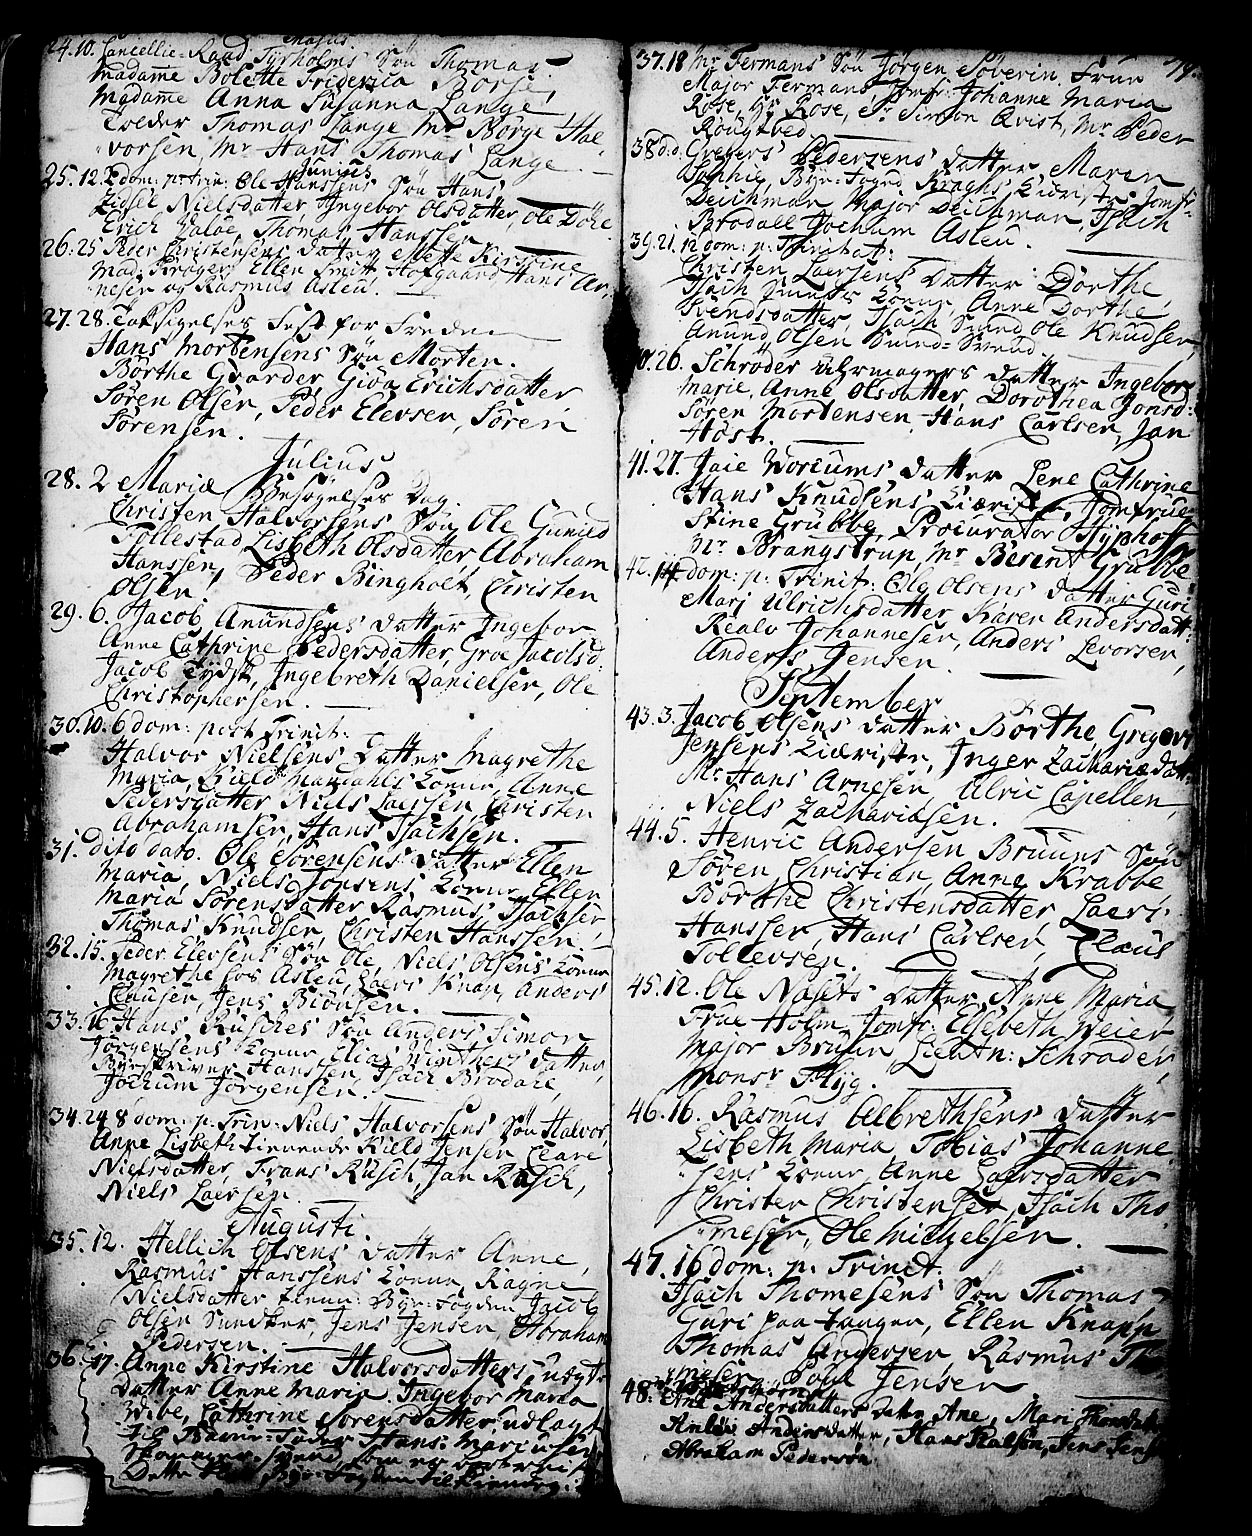 Majus
24. 10. Cancellie-Raad Tyrholms Søn Thomas
Madame Bolette Friderica Borse,
Madame Anna Susanna Lange,
Tolder Thomas Lange Mr Børge Hal-
vorsen, Mr Hans Thomas Lange.
Junius
25. 12. 2 dom: p: trin: Ole Hanssens Søn Hans
Zidsel Nielsdatter, Ingebor Olsdatter, Ole Døhl
Erich Valøe, Thomas Hanssen
26. 25 Peder Christensens Datter Mette Kirstine
Mad. Krager, Ellen Smit, Hofgaard, Hans Ar-
nesen og Rasmus Asleu.
27. 28. Taksigelses Fest for Freden
Hans Mortensens Søn Morten.
Børthe Gaarder, Gioa Erichsdatter
Søren Olsen, Peder Elevsen, Søren
Sørensen.
Julius
28. 2 Mariæ Besøgelses Dag.
Christen Halvorsens Søn Ole Gunild
Tollestad Lisbeth Olsdatter, Abraham
Hanssen, Peder Bingholt, Christen
Olsen,
29. 6. Jacob Anundsens Datter Ingebor
Anne Cathrine Pedersdatter, Groe Jacobsd:
Jacob Tydsk, Ingebreth Danielsen, Ole
Christophersen.
30. 10. 6 dom: post Trinit:
Halvor Nielsens Datter Magrethe
Maria, Kield Mandahls Kone, Anne
Pedersdatter, Niels Laersen, Christen
Abrahamsen, Hans Isachsen.
31. dito dato. Ole Sørensens Datter Ellen
Maria, Niels Jonsens Kone, Ellen
Maria Sørensdatter Rasmus Isachsen,
Thomas Knudsen, Christen Hanssen.
32. 15. Peder Elevsens Søn Ole, Niels Olsens Kone
Magrethe hos Asleu, Laers Knap, Anders
Clausen, Jens Biørnsen.
33. 16 Hans Rusches Søn Anders Simon
Jørgensens Kone, Elias Winthers Datter,
Byeskriver Hanssen Isach Brodahl,
Jochum Jørgensen.
34. 24 8 dom: p: Trin: Niels Halvorsens Søn Halvor,
Anne Lisbeth tienende Kield Jensen Clare
Nielsdatter, Frans Rusch, Jan Rusch,
Niels Laersen.
Augusti.
35. 12. Hellich Olsens Datter Anne,
Rasmus Hanssens Kone, Ragne
Nielsdatter tienn: Bye-Fogden Jacob
Olsen Sundsker, Jens Jensen, Abraham
Pedersen.
36. 17. Anne Kirstine Halvorsdatters uægte
Datter Anne Maria Ingebor Maria
Wibe, Cathrine Sørensdatter, udlagt
til Barne-Fader Hans Mariusen
Skomager-Svend, som er bortreist
Dette
37. 18 Mr Fermans Søn Jørgen Søverin. Frue
Major Fermans Jomfr: Johanne Maria
Rose, Hr Rose, Sr Simon Qvist, Mr Peder
Rougtved.
38 d.d. Gregers Pedersens Datter Maren
Sophie, Bye-Foged Kraghs Kiæriste, Jomfr:
Deichman Major Deichman, Isach
Brodall Jochum Asleu.
39. 21. 12 dom: p: Trinitat:
Christen Laersens Datter: Dorthe,
Isach Svends Kone, Anne Dorthe
Svendsdatter, Isach Svend, Ole Knudsen,
Anund Olsen Svend-Svend.
40. 26. Schrøder Uhrmagers Datter Ingebor
Marie, Anne Olsdatter, Dorothea Jonsd:
Søren Mortensen, Hans Carlsen, Jan
Høst.
41. 27. Jaie Worlums Datter Lene Cathrine
Hans Knudsens Kiæriste, Jomfrue
Stine Grubbe, Procurator Hyphoff
Mr Brangstrup, Mr Berent Grubbe
42. 14 dom: p: Trinit: Ole Olsens Datter Guri
Mari Ulrichsdatter Karen Andersdatt:
Realv Johannesen, Anders Levorsen,
Anders Jensen.
September
43. 3. Jacob Olsens Datter Børthe, Gregers
Jensens Kiæriste, Inger Zachariædatt:
Mr Hans Arnesen, Ulric Capellen,
Niels Zachariæsen.
44. 5. Henric Andersen Bruuns Søn
Søren Christian, Anne Krabbe
Børthe Christensdatter Laers
Hanssen, Hans Carlsen, Claus
Tollevsen.
45. 12. Ole Nasets Datter Anne Maria,
Frue Holm Jomfr: Elsebeth Weier
Major Bruun Lieutn: Schrøder,
Monsr Flyg.
46. 16. Rasmus Albrethsens Datter
Lisbeth Maria, Tobias Johanne-
sens Kone, Anne Laersdatter
Christen Christensen, Isach Tho-
mesen, Ole Michelsen.
47. 16 dom: p: Trinit.
Isach Thomesens Søn Thomas
Guri paa Tangen, Ellen Knapp
Thomas Andersen, Rasmus Tho-
mesen Poul Jensen
48.
Ane Andersdatters Datter Ane, Mari
Andersdatter, Hans Jens Jensen
Abraham Pedersen